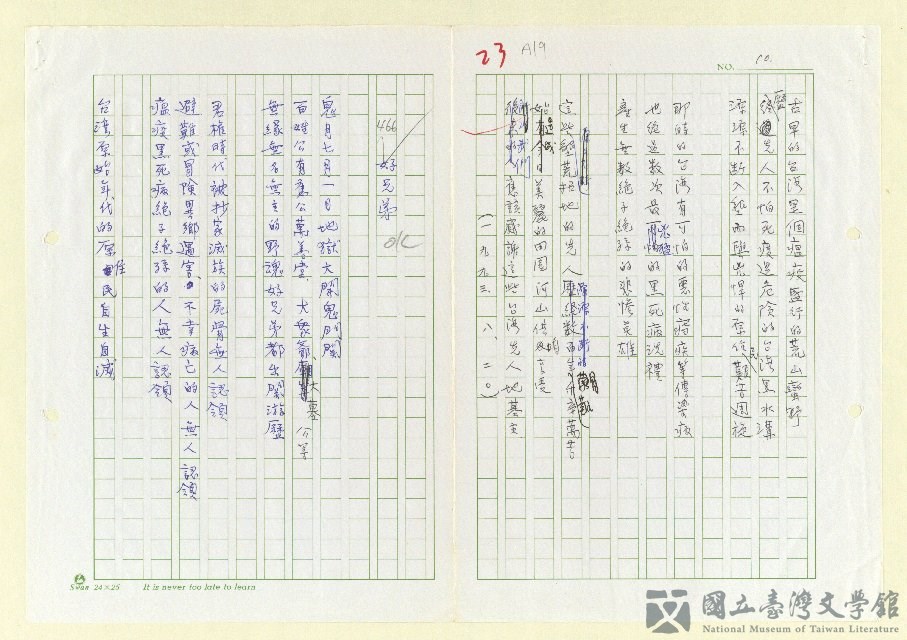 23 A19
NO. 10.
古早的台灣是個瘟疫盛行的荒山蠻野
先人不怕死疫過危險的台灣黑水溝
深深不斷入墾而與兇悍的原住民艱苦週旋
那時的台灣有可怕的惡性瘧疾等傳染病
也經過數次最恐怖的黑死病洗禮
產生無數絕子絕孫的悲慘英雄
這些墾荒拓地的先人歷經數百年千辛萬苦
始有今日美麗的田園河山
我們應該感謝這些台灣先人地基主
(一九九三、八、二〇)
466 好兄弟 OK
鬼月七月一日地獄大開鬼門關
百姓公有應公萬善堂、大眾爺大墓公等
無緣無名無主的野魂好兄弟都出關游歷
君權時代被抄家滅族的屍骨無人認領
避難或冒險異鄉遇害、不幸病亡的人無人認領
瘟疫黑死病絕子絕孫的人無人認領
台灣原始年代的原住民自生自滅
Swan 24×25 It is never too late to learn
國立臺灣文學館
National Museum of Taiwan Literature